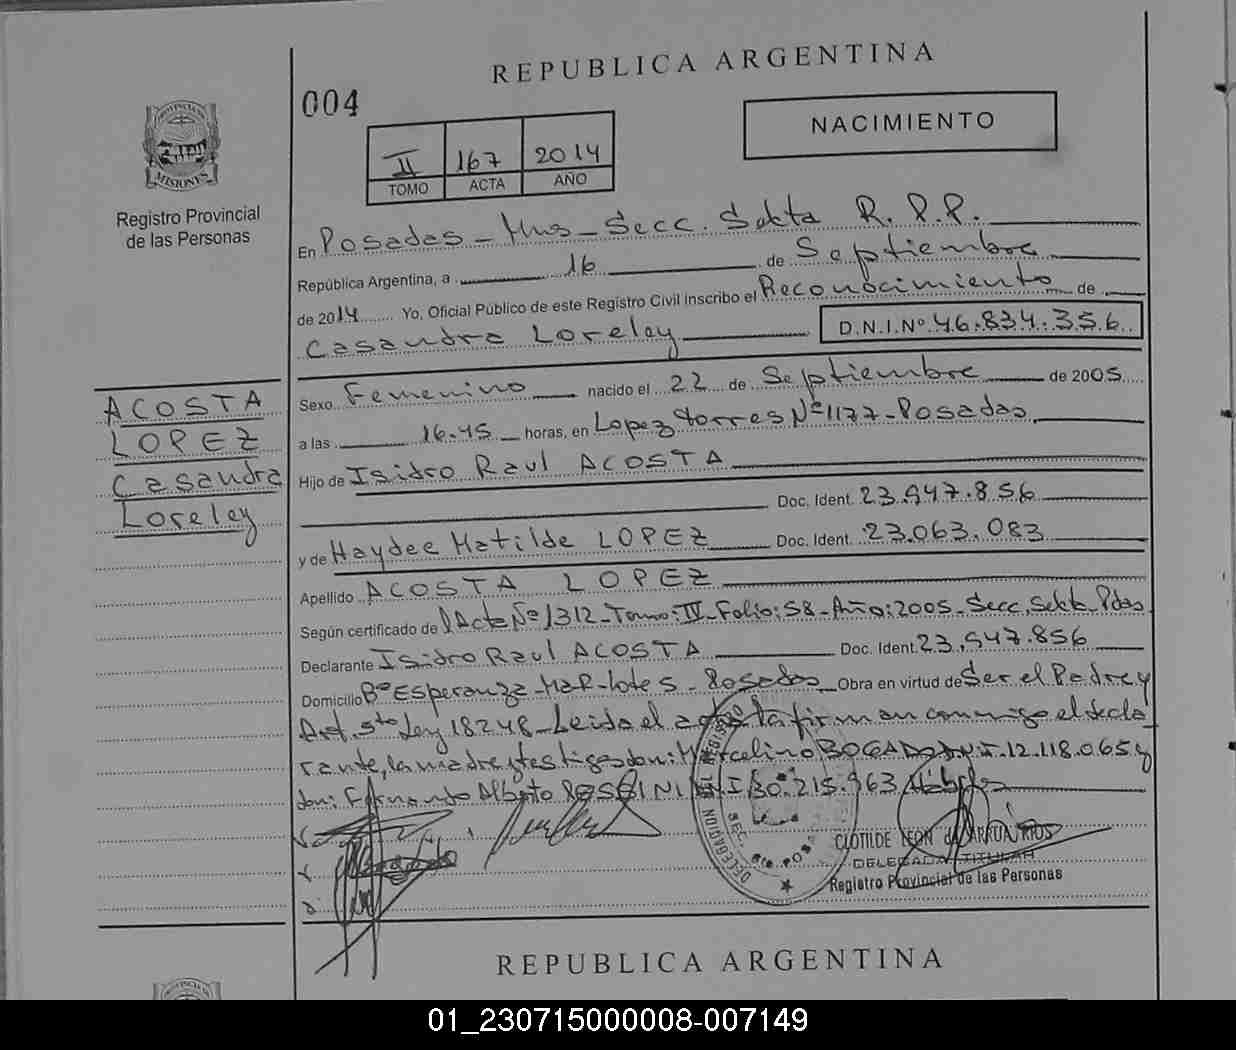 REPUBLICA ARGENTINA
004
NACIMIENTO
II 167 2014
TOMO ACTA AÑO
MISIONES
Registro Provincial
de las Personas
En Posadas - Mns - Secc. Sexta R.P.P.
República Argentina, a 16 de Septiembre
de 2014 Yo, Oficial Público de este Registro Civil inscribo el Reconocimiento de
Casandra Loreley D.N.I.Nº 46.834.356
Sexo Femenino nacido el 22 de Septiembre de 2005
a las 16.45 horas, en Lopez Torres Nº 1177 - Posadas
Hijo de Isidro Raul ACOSTA
Doc. Ident. 23.947.856
y de Haydee Matilde LOPEZ Doc. Ident. 23.063.083
Apellido ACOSTA LOPEZ
Según certificado de Acta Nº 1312 - Tomo: IV - Folio: 58 - Año: 2005 - Secc. Sexta Pdas
Declarante Isidro Raul ACOSTA Doc. Ident. 23.947.856
Domicilio Bº Esperanza - Lote 5 - Posadas Obra en virtud de Ser el Padre y
Art. 5to Ley 18248 - Leida el acta la firman conmigo el decla
rante, la madre y testigos don: Marcelino BOGADO D.N.I. 12.118.065 y
don: Fernando Alberto D.N.I 30.215.963
ACOSTA
LOPEZ
Casandra
Loreley
CLOTILDE LEON de ARRUA RIOS
DELEGADA TITULAR
Registro Provincial de las Personas
REPUBLICA ARGENTINA
01_230715000008-007149